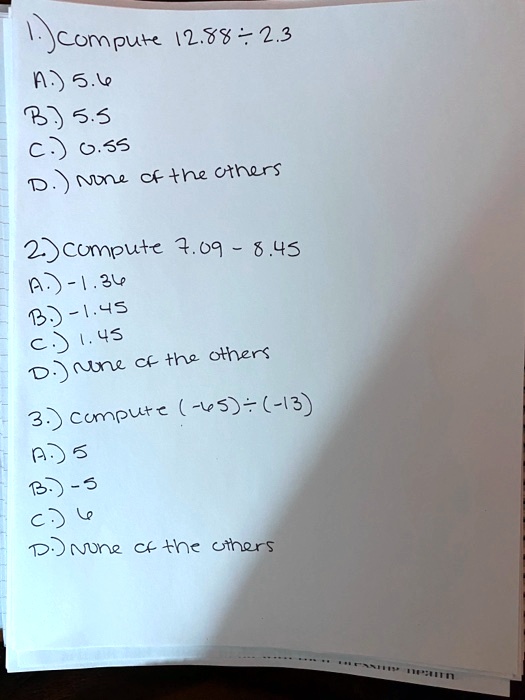 1.) compute 12.88 ÷ 2.3
A.) 5.6
B.) 5.5
C.) 0.55
D.) None of the others
2.) compute 7.09 - 8.45
A.) -1.36
B.) -1.45
C.) 1.45
D.) None of the others
3.) compute (-65) ÷ (-13)
A.) 5
B.) -5
C.) 6
D.) None of the others